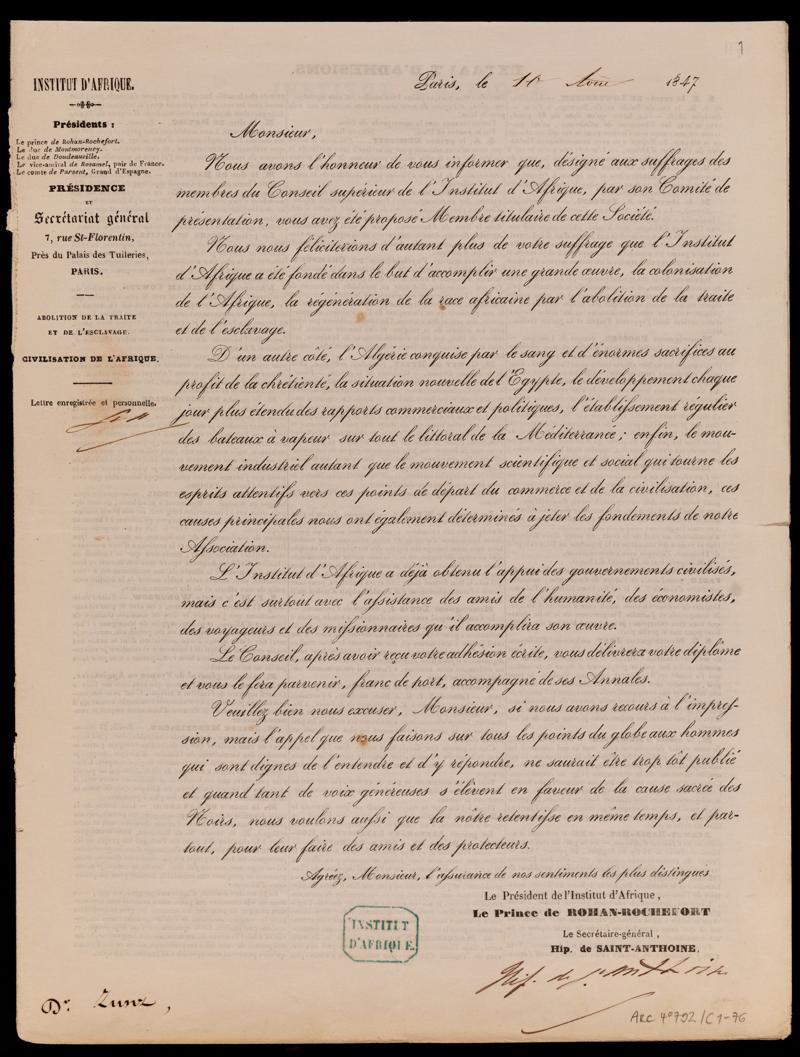 INSTITUT D'AFRIQUE.
Présidents :
Le prince de Rohan-Rochefort.
Le duc de Montmorency.
Le duc de Doudeauville.
Le vice-amiral de Rosamel, pair de France.
Le comte de Parsent, Grand d'Espagne.
PRÉSIDENCE
ET
Secrétariat général
7, rue St-Florentin,
Près du Palais des Tuileries,
PARIS.
ABOLITION DE LA TRAITE
ET DE L'ESCLAVAGE.
CIVILISATION DE L'AFRIQUE.
Lettre enregistrée et personnelle.
Paris, le 1847
Monsieur,
Nous avons l'honneur de vous informer que, désigné aux suffrages des
membres du Conseil supérieur de l'Institut d'Afrique, par son Comité de
présentation, vous avez été proposé Membre titulaire de cette Société.
Nous nous féliciterions d'autant plus de votre suffrage que l'Institut
d'Afrique a été fondé dans le but d'accomplir une grande œuvre, la colonisation
de l'Afrique, la régénération de la race africaine par l'abolition de la traite
et de l'esclavage.
D'un autre côté, l'Algérie conquise par le sang et d'énormes sacrifices au
profit de la chrétienté, la situation nouvelle de l'Egypte, le développement chaque
jour plus étendu des rapports commerciaux et politiques, l'établissement régulier
des bateaux à vapeur sur tout le littoral de la Méditerranée ; enfin, le mou-
vement industriel autant que le mouvement scientifique et social qui tourne les
esprits attentifs vers ces points de départ du commerce et de la civilisation, ces
causes principales nous ont également déterminés à jeter les fondements de notre
Association.
L'Institut d'Afrique a déjà obtenu l'appui des gouvernements civilisés,
mais c'est surtout avec l'assistance des amis de l'humanité, des économistes,
des voyageurs et des missionnaires qu'il accomplira son œuvre.
Le Conseil, après avoir reçu votre adhésion écrite, vous délivrera votre diplôme
et vous le fera parvenir, franc de port, accompagné de ses Annales.
Veuillez bien nous excuser, Monsieur, si nous avons recours à l'impres-
sion, mais l'appel que nous faisons sur tous les points du globe aux hommes
qui sont dignes de l'entendre et d'y répondre, ne saurait être trop tôt publié
et quand tant de voix généreuses s'élèvent en faveur de la cause sacrée des
Noirs, nous voulons aussi que la nôtre retentisse en même temps, et par-
tout, pour leur faire des amis et des protecteurs.
Agréez, Monsieur, l'assurance de nos sentiments les plus distingués
Le Président de l'Institut d'Afrique,
Le Prince de ROHAN-ROCHEFORT
Le Secrétaire-général,
Hip. de SAINT-ANTHOINE.
Hip. de St Anthoine
INSTITUT
D'AFRIQUE.
Dr. Zunz,
ARC 4° 792/C1-76